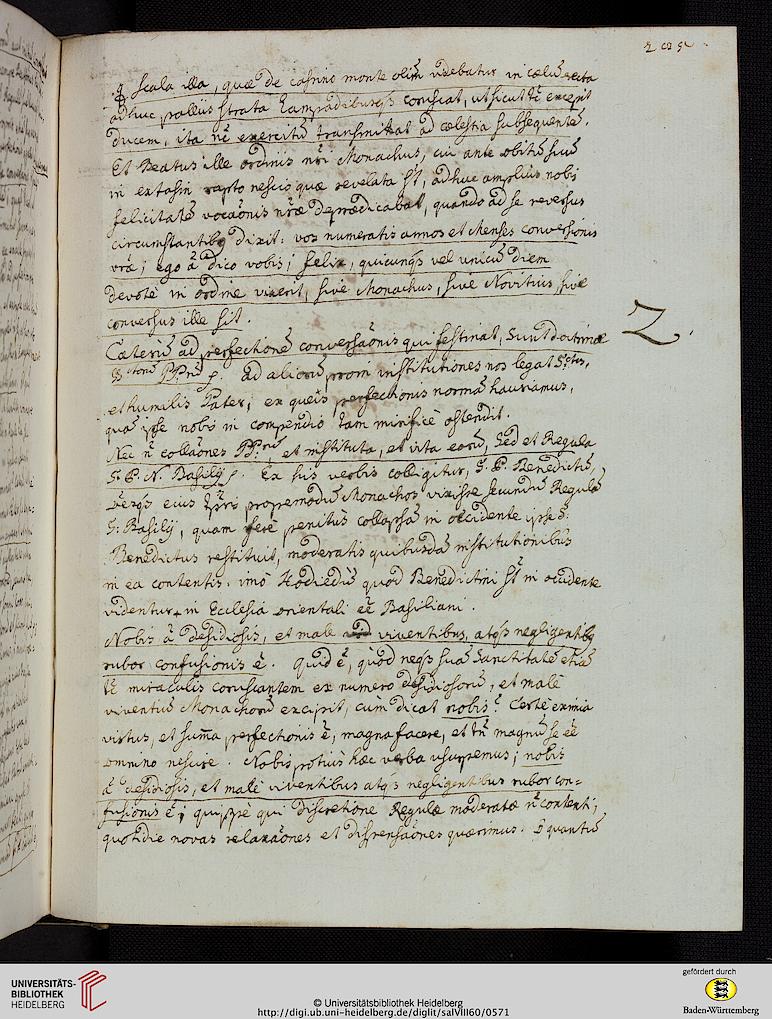 scala illa, quæ de casino monte olim videbatur in cælũ recta
adhuc palliis strata lampadibusqꝫ coruscat, ut sicut tc̃ excepit
ducem, ita nc̃ exercitũ transmittat ad cælestia subsequentẽ.
Et Beatus ille ordinis nr̃i Monachus, cui ante obitũ suũ
in extasin rapto nescio quæ revelata st̃, adhuc amplius nobis
felicitatẽ vocaõnis nr̃æ deprædicabat, quando ad se reversus
circumstantibꝫ dixit: vos numeratis annos et Menses conversionis
vr̃æ; ego ã dico vobis; felix, quicunqꝫ vel unicũ diem
devotè in ordine vixerit, sive Monachus, sive Novitius, sive
conversus ille sit.
Cæterũ ad perfectionẽ conversaõnis qui festinat, sunt doctrinæ
Sctorũ PP.rũ p. ad institutiones nos legat S.ctus,
et humilis Pater; ex queis perfectionis normã hauriamus,
quã ipse nobis in compendio tam mirificè ostendit.
Nec ñ collaõnes PP.rũ, et instituta, et vita eorũ, sed et Regula
S. P. N. Basilij p. Ex his verbis colligitur, S. P. Benedictũ,
eius propemodũ Monachos vixisse secundũ Regulã
S. Basilij, quam ferè penitùs collapsã in occidente ipse S.
Benedictus restituit, moderatis quibusdã institutionibus
in ea contentis. imò Hodiedũ quod Benedictini st̃ in occidente
videntur in Ecclesiâ orientali eẽ Basiliani.
Nobis ã desidiosis, et male viventibus, atqꝫ negligentibꝫ
rubor confusionis ẽ. Quid ẽ, quòd neqꝫ suã Sanctitatẽ etiã
tc̃ miraculis coruscantem ex numero desidiosorũ, et malè
viventiũ Monachorũ excipit, cùm dicat nobis? Certè eximia
virtus, et sum̃a perfectionis ẽ, magna facere, et tñ magnũ se eẽ
omnino nescire. Nobis potiùs hæc verba usurpemus; nobis
ã desidiosis, et malè viventibus atqꝫ negligentibus rubor con=
fusionis ẽ; quippè qui discretione Regulæ moderatæ ñ contenti,
quotidie novas relaxaõnes et dispensaõnes quærimus. quantũ
2
UNIVERSITÄTS-
BIBLIOTHEK
HEIDELBERG
© Universitätsbibliothek Heidelberg
http://digi.ub.uni-heidelberg.de/diglit/salVIII60/0571
gefördert durch
Baden-Württemberg